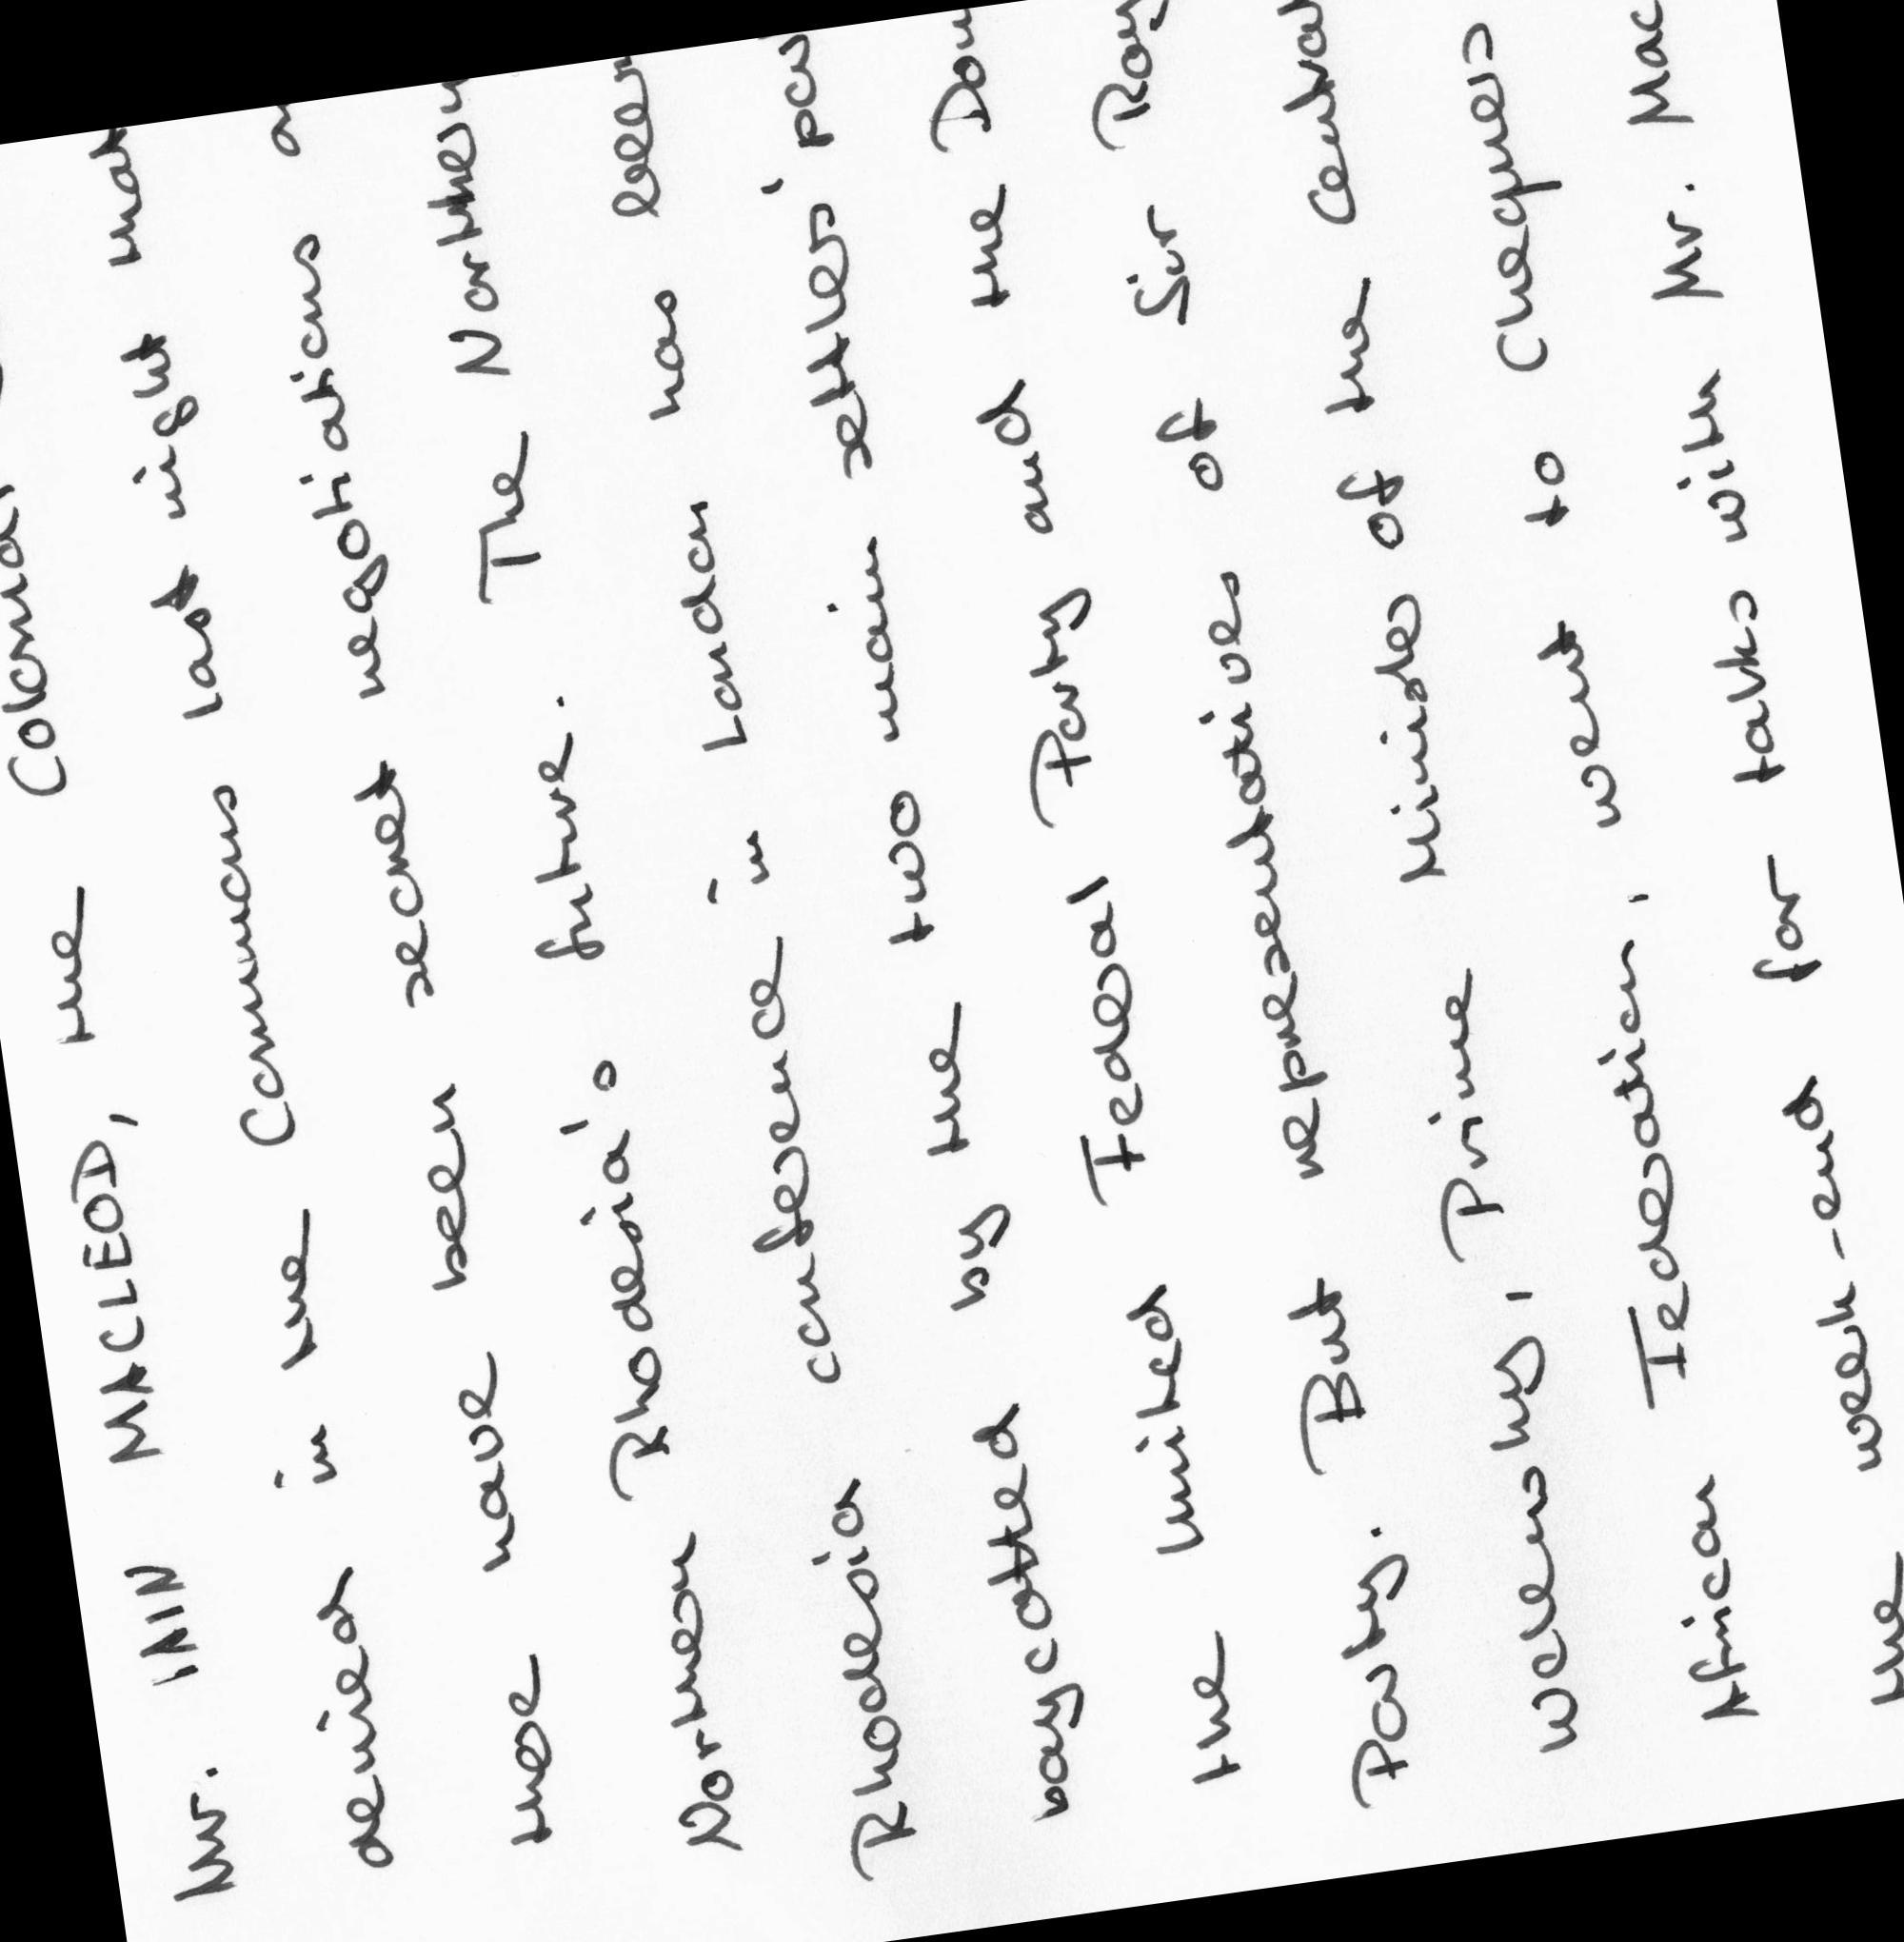 Mr. IAIN MACLEOD, the Colonial
denied in the Commons last night that
there have been secret negotiations on
Northern Rhodesia's future. The Northern
Rhodesia conference in London has been
boycotted by the two main settlers' par
the United Federal Party and the Dom
Party. But representatives of Sir Roy
Welensky, Prime Minister of the Central
African Federation, went to Chequers
the week-end for talks with Mr. Mac